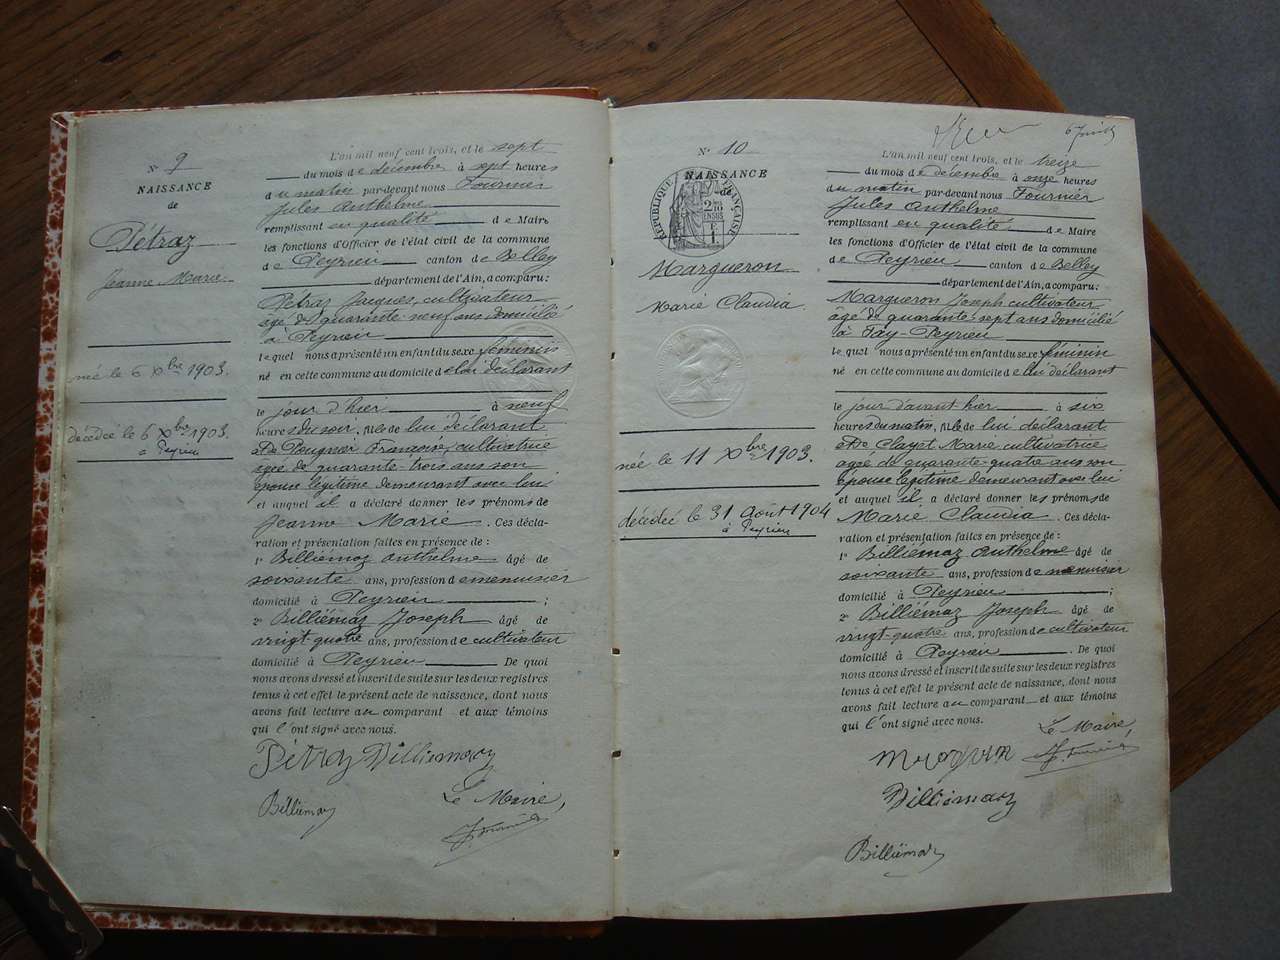 Nº 9
NAISSANCE
de
Pétraz
Jeanne Marie
née le 6 Xbre 1903.
décédée le 6 Xbre 1903.
à Peyrieu
L'an mil neuf cent trois, et le sept
du mois de décembre à sept heures
du matin par-devant nous Fournier
Jules Anthelme
remplissant en qualité de Maire
les fonctions d'Officier de l'état civil de la commune
de Peyrieu canton de Belley
département de l'Ain, a comparu:
Pétraz Jacques, cultivateur
âgé de quarante-neuf ans domicilié
à Peyrieu
lequel nous a présenté un enfant du sexe féminin
né en cette commune au domicile de lui déclarant
le jour d'hier à neuf
heures du soir, fils de lui déclarant
et De Françoise, cultivatrice
âgée de quarante-trois ans son
épouse légitime demeurant avec lui
et auquel il a déclaré donner les prénoms de
Jeanne Marie. Ces décla-
ration et présentation faites en présence de:
1º Billiémaz Anthelme âgé de
soixante ans, profession de menuisier
domicilié à Peyrieu;
2º Billiémaz Joseph âgé de
vingt quatre ans, profession de cultivateur
domicilié à Peyrieu. De quoi
nous avons dressé et inscrit de suite sur les deux registres
tenus à cet effet le présent acte de naissance, dont nous
avons fait lecture au comparant et aux témoins
qui l'ont signé avec nous.
Pétraz Billiemaz
Billiémaz Le Maire,
J. Fournier
Nº 10
NAISSANCE
de
RÉPUBLIQUE FRANÇAISE
Margueron
Marie Claudia
née le 11 Xbre 1903.
décédée le 31 Août 1904
à Peyrieu
L'an mil neuf cent trois, et le treize
du mois de décembre à onze heures
du matin par-devant nous Fournier
Jules Anthelme
remplissant en qualité de Maire
les fonctions d'Officier de l'état civil de la commune
de Peyrieu canton de Belley
département de l'Ain, a comparu:
Margueron Joseph cultivateur
âgé de quarante-sept ans domicilié
à Fay-Peyrieu
lequel nous a présenté un enfant du sexe féminin
né en cette commune au domicile de lui déclarant
le jour d'avant hier à six
heures du matin, fils de lui déclarant
et De Clayet Marie cultivatrice
âgée de quarante-quatre ans son
épouse légitime demeurant avec lui
et auquel il a déclaré donner les prénoms de
Marie Claudia. Ces décla-
ration et présentation faites en présence de:
1º Billiémaz Anthelme âgé de
soixante ans, profession de menuisier
domicilié à Peyrieu;
2º Billiémaz Joseph âgé de
vingt-quatre ans, profession de cultivateur
domicilié à Peyrieu. De quoi
nous avons dressé et inscrit de suite sur les deux registres
tenus à cet effet le présent acte de naissance, dont nous
avons fait lecture au comparant et aux témoins
qui l'ont signé avec nous.
Le Maire,
J. Fournier
Billiémaz
Billiémaz